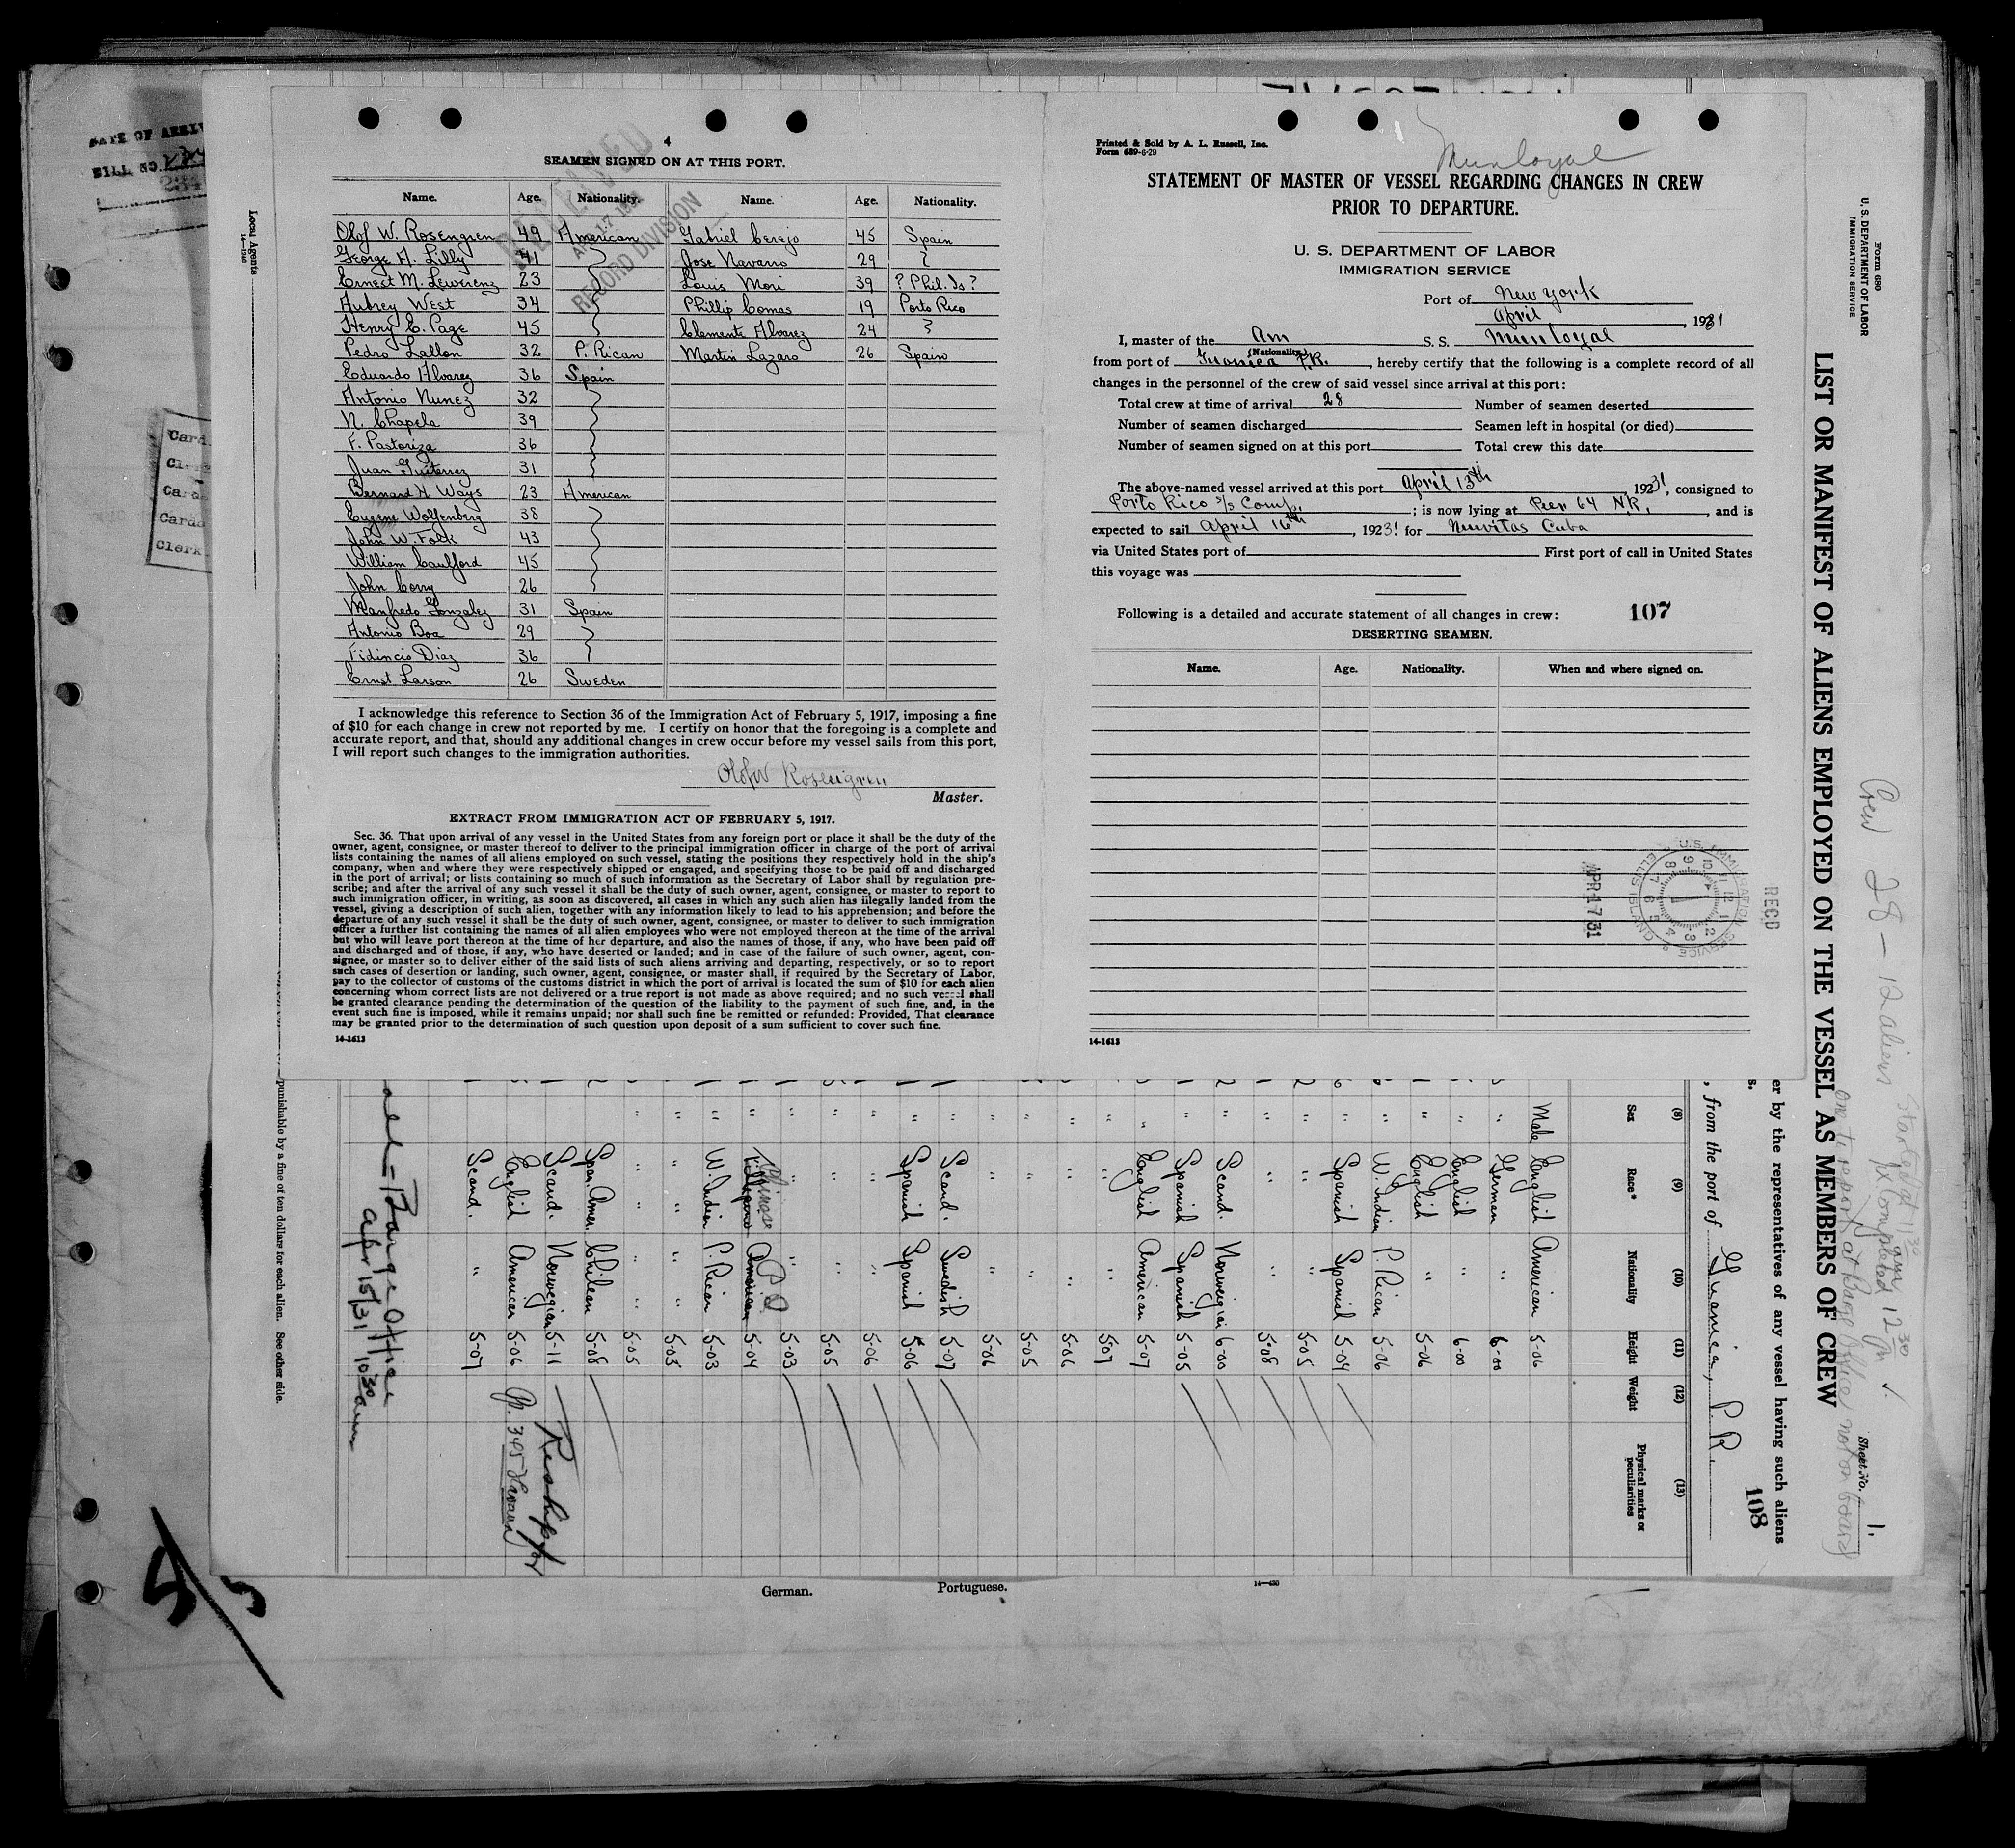 4
SEAMEN SIGNED ON AT THIS PORT.
RECEIVED
RECORD DIVISION
Name. Age. Nationality. Name. Age. Nationality.
Olof W. Rosengren 49 American Gabriel Cerejo 45 Spain
George H. Lilly 41 Jose Navarro 29
Ernest M. Lewerenz 23 Louis Mori 39 ? Phil. Is ?
Aubrey West 34 Phillip Comas 19 Porto Rico
Henry C. Page 45 Clemente Alvarez 24
Pedro Lallon 32 P. Rican Martin Lazaro 26 Spain
Eduardo Alvarez 36 Spain
Antonio Nunez 32
N. Chapela 39
F. Pastoriza 36
Juan Guiterrez 31
Bernard H Ways 23 American
Eugene Wolfenberg 38
John W. Folk 43
William Caulford 45
John Corry 26
Manfredo Gonzalez 31 Spain
Antonio Boa 29
Fidincio Diaz 36
Ernst Larson 26 Sweden
I acknowledge this reference to Section 36 of the Immigration Act of February 5, 1917, imposing a fine
of $10 for each change in crew not reported by me. I certify on honor that the foregoing is a complete and
accurate report, and that, should any additional changes in crew occur before my vessel sails from this port,
I will report such changes to the immigration authorities.
Olof W Rosengren
Master.
EXTRACT FROM IMMIGRATION ACT OF FEBRUARY 5, 1917.
Sec. 36. That upon arrival of any vessel in the United States from any foreign port or place it shall be the duty of the
owner, agent, consignee, or master thereof to deliver to the principal immigration officer in charge of the port of arrival
lists containing the names of all aliens employed on such vessel, stating the positions they respectively hold in the ship's
company, when and where they were respectively shipped or engaged, and specifying those to be paid off and discharged
in the port of arrival; or lists containing so much of such information as the Secretary of Labor shall by regulation pre-
scribe; and after the arrival of any such vessel it shall be the duty of such owner, agent, consignee, or master to report to
such immigration officer, in writing, as soon as discovered, all cases in which any such alien has illegally landed from the
vessel, giving a description of such alien, together with any information likely to lead to his apprehension; and before the
departure of any such vessel it shall be the duty of such owner, agent, consignee, or master to deliver to such immigration
officer a further list containing the names of all alien employees who were not employed thereon at the time of the arrival
but who will leave port thereon at the time of her departure, and also the names of those, if any, who have been paid off
and discharged and of those, if any, who have deserted or landed; and in case of the failure of such owner, agent, con-
signee, or master so to deliver either of the said lists of such aliens arriving and departing, respectively, or so to report
such cases of desertion or landing, such owner, agent, consignee, or master shall, if required by the Secretary of Labor,
pay to the collector of customs of the customs district in which the port of arrival is located the sum of $10 for each alien
concerning whom correct lists are not delivered or a true report is not made as above required; and no such vessel shall
be granted clearance pending the determination of the question of the liability to the payment of such fine, and, in the
event such fine is imposed, while it remains unpaid; nor shall such fine be remitted or refunded: Provided, That clearance
may be granted prior to the determination of such question upon deposit of a sum sufficient to cover such fine.
14-1613
Printed & Sold by A. L. Russell, Inc.
Form 689-6-29
Munloyal
STATEMENT OF MASTER OF VESSEL REGARDING CHANGES IN CREW
PRIOR TO DEPARTURE.
U. S. DEPARTMENT OF LABOR
IMMIGRATION SERVICE
Port of New York
April, 1931
I, master of the Am S. S. Munloyal
(Nationality)
from port of Guanica P.R., hereby certify that the following is a complete record of all
changes in the personnel of the crew of said vessel since arrival at this port:
Total crew at time of arrival 28 Number of seamen deserted
Number of seamen discharged Seamen left in hospital (or died)
Number of seamen signed on at this port Total crew this date
The above-named vessel arrived at this port April 13th, 1931, consigned to
Porto Rico S/S Comp.; is now lying at Pier 64 N.R., and is
expected to sail April 16th, 1931 for Nuevitas Cuba
via United States port of First port of call in United States
this voyage was
Following is a detailed and accurate statement of all changes in crew: 107
DESERTING SEAMEN.
Name. Age. Nationality. When and where signed on.
APR 17 31
U.S. IMMIGRATION SERVICE ELLIS ISLAND
REC'D
14-1613
Form 680
U. S. DEPARTMENT OF LABOR
IMMIGRATION SERVICE
LIST OR MANIFEST OF ALIENS EMPLOYED ON THE VESSEL AS MEMBERS OF CREW
Crew 28 - 12 aliens
Sheet No. 1.
er by the representatives of any vessel having such aliens
108
, from the port of Guanica, P.R.
(8) (9) (10) (11) (12) (13)
Sex Race* Nationality Height Weight Physical marks or peculiarities
Male English American 5-06
" German " 6-00
" English " 6-00
" English " 5-06
" W. Indian P. Rican 5-06
" Spanish Spanish 5-04
" " " 5-05
" " " 5-08
" Scand. Norwegian 6-00
" Spanish Spanish 5-05
" English American 5-07
" " " 5-07
" " " 5-06
" " " 5-05
" " " 5-06
" Scand. Swedish 5-07
" Spanish Spanish 5-06
" " " 5-06
" " " 5-05
" " " 5-03
" Chinese American P.I. 5-04
" W. Indian P. Rican 5-03
" " " 5-05
" " " 5-05
Span. Amer. Chilean 5-08
Scand. Norwegian 5-11
English American 5-06
Scand. " 5-07
Barge Office
Apr 15/31 10 30 am
punishable by a fine of ten dollars for each alien. See other side.
Local Agents
DATE OF ARRIV
BILL NO.
Card
Cl
Card
Clerk
German. Portuguese.